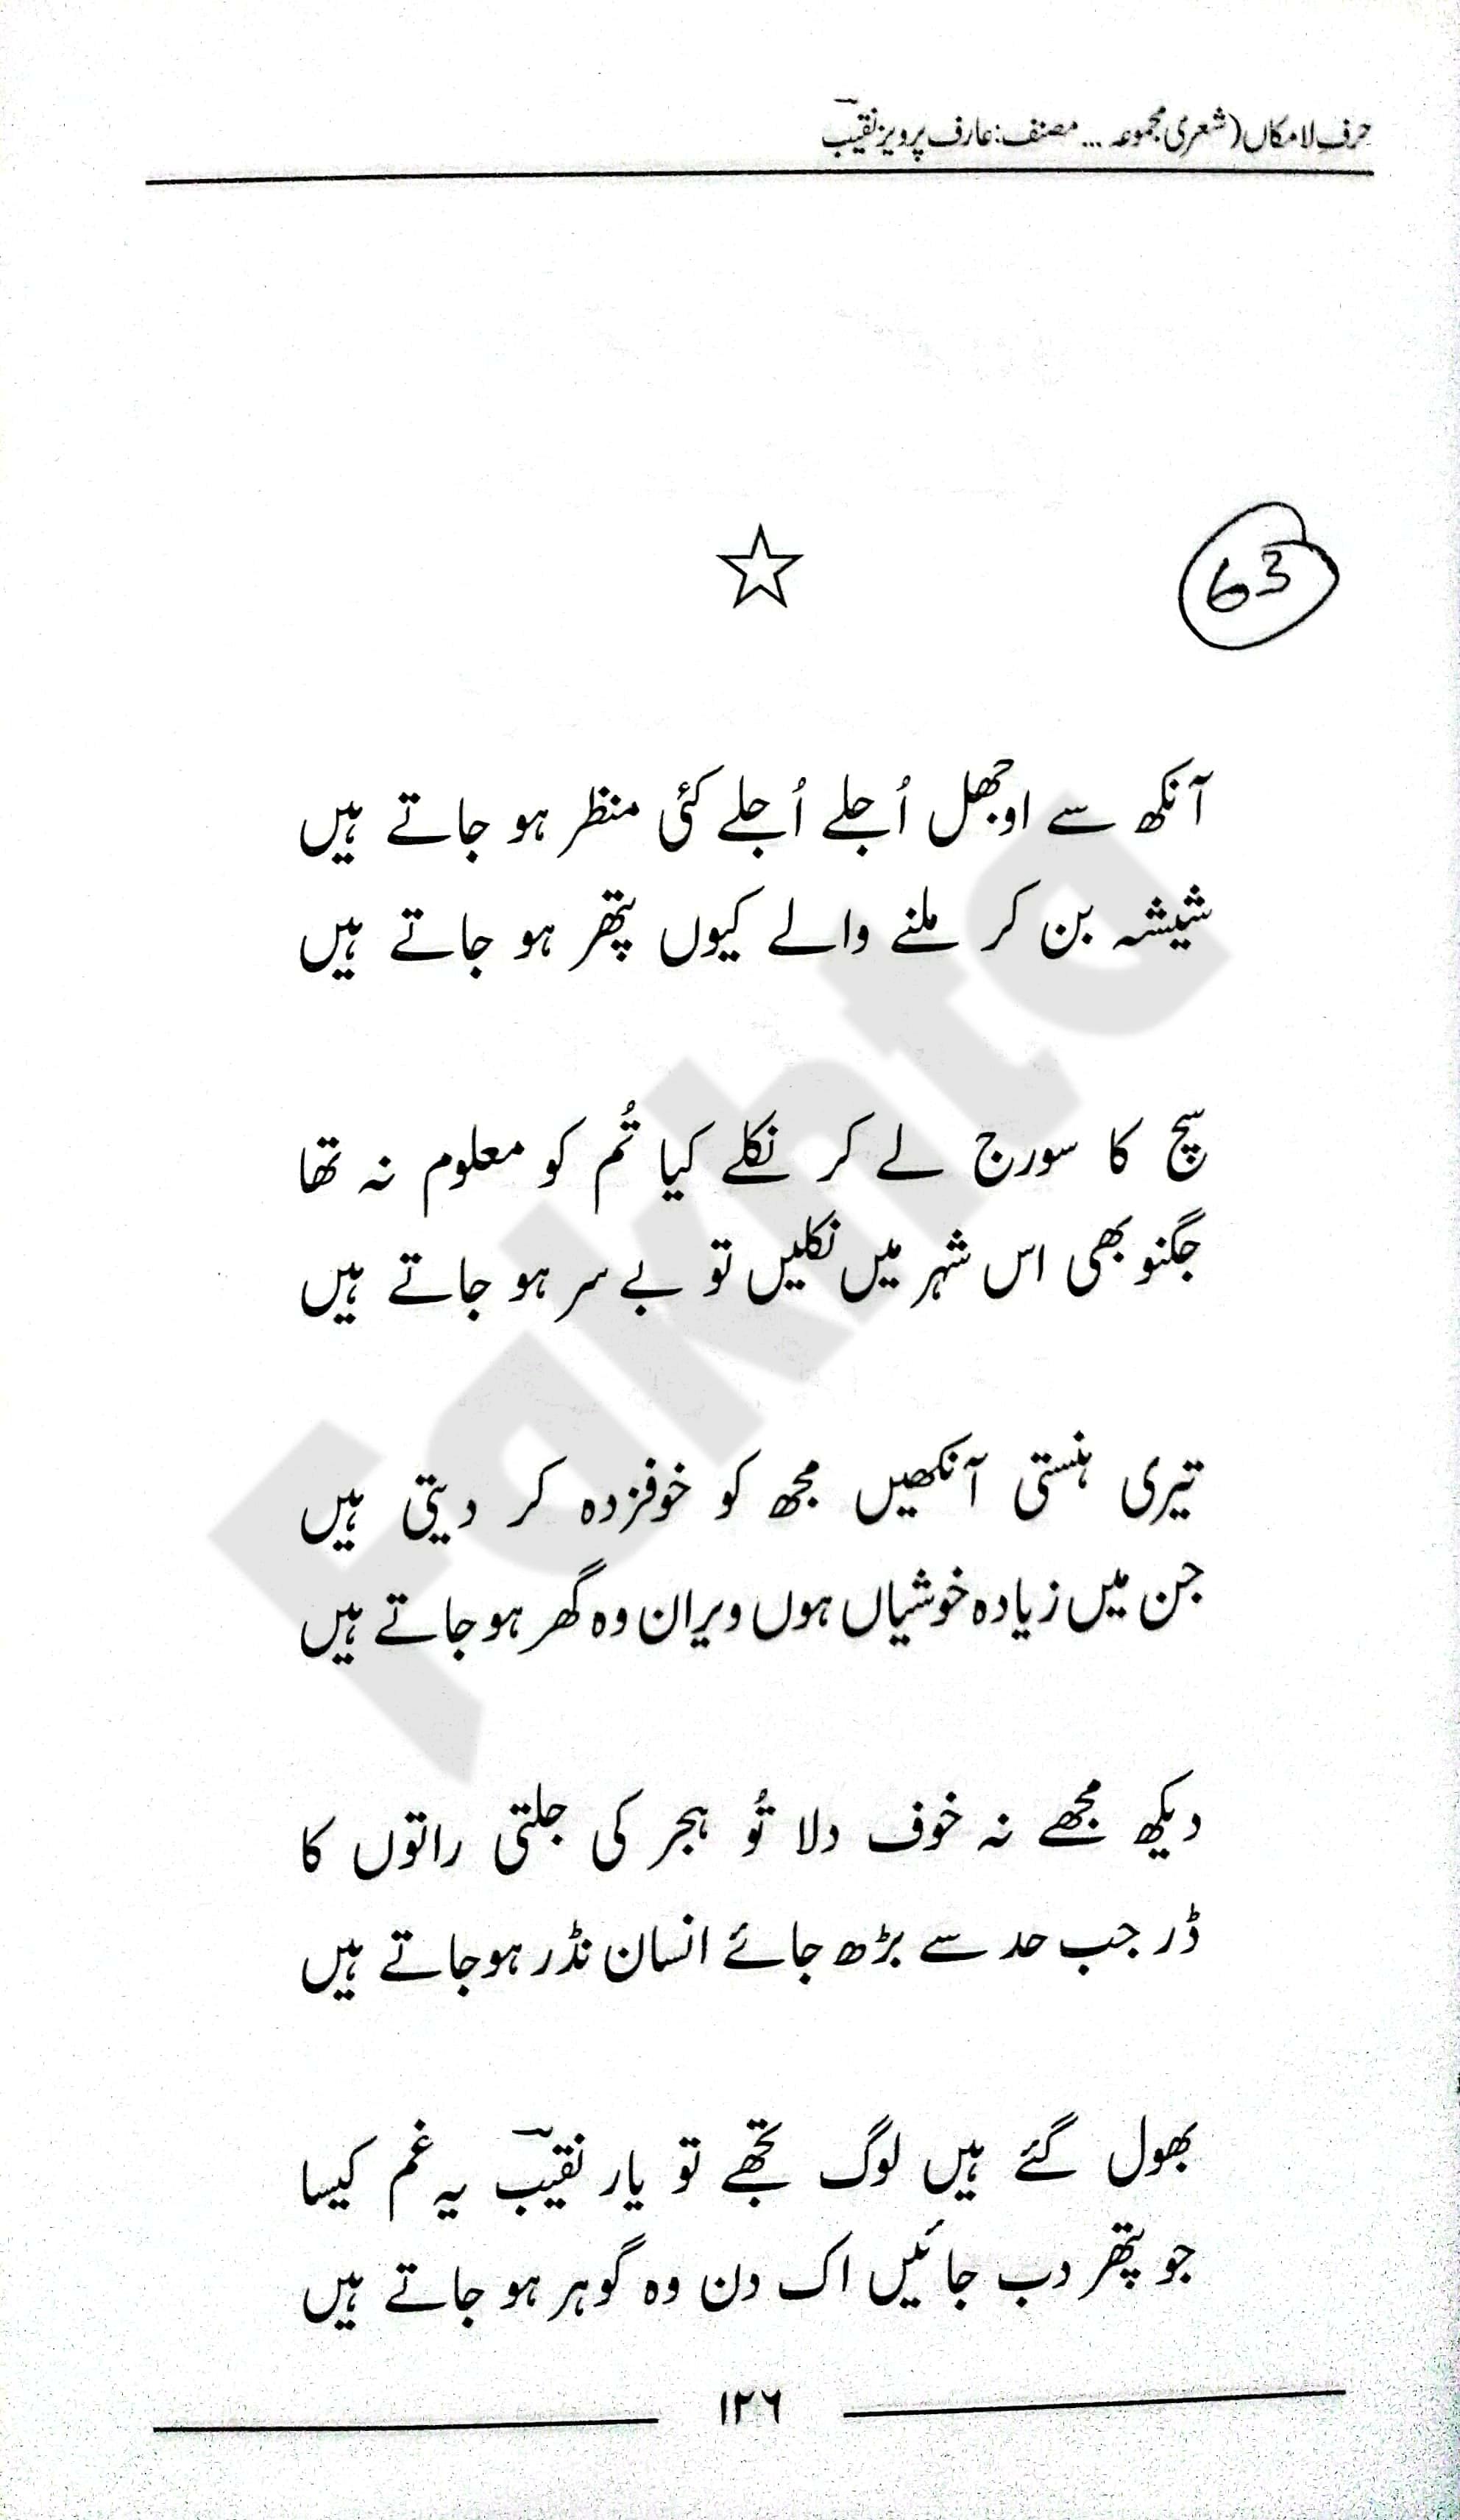 حرفِ لامکاں (شعری مجموعہ ... مصنف: عارف پرویز نقیبؔ
63
آنکھ سے اوجھل اُجلے اُجلے کئی منظر ہو جاتے ہیں
شیشہ بن کر ملنے والے کیوں پتھر ہو جاتے ہیں
سچ کا سورج لے کر نکلے کیا تُم کو معلوم نہ تھا
جگنو بھی اس شہر میں نکلیں تو بے سر ہو جاتے ہیں
تیری ہنستی آنکھیں مجھ کو خوفزدہ کر دیتی ہیں
جن میں زیادہ خوشیاں ہوں ویران وہ گھر ہو جاتے ہیں
دیکھ مجھے نہ خوف دلا تُو ہجر کی جلتی راتوں کا
ڈر جب حد سے بڑھ جائے انسان نڈر ہو جاتے ہیں
بھول گئے ہیں لوگ تجھے تو یار نقیبؔ یہ غم کیسا
جو پتھر دب جائیں اک دن وہ گوہر ہو جاتے ہیں
۱۲۶
Fakhta